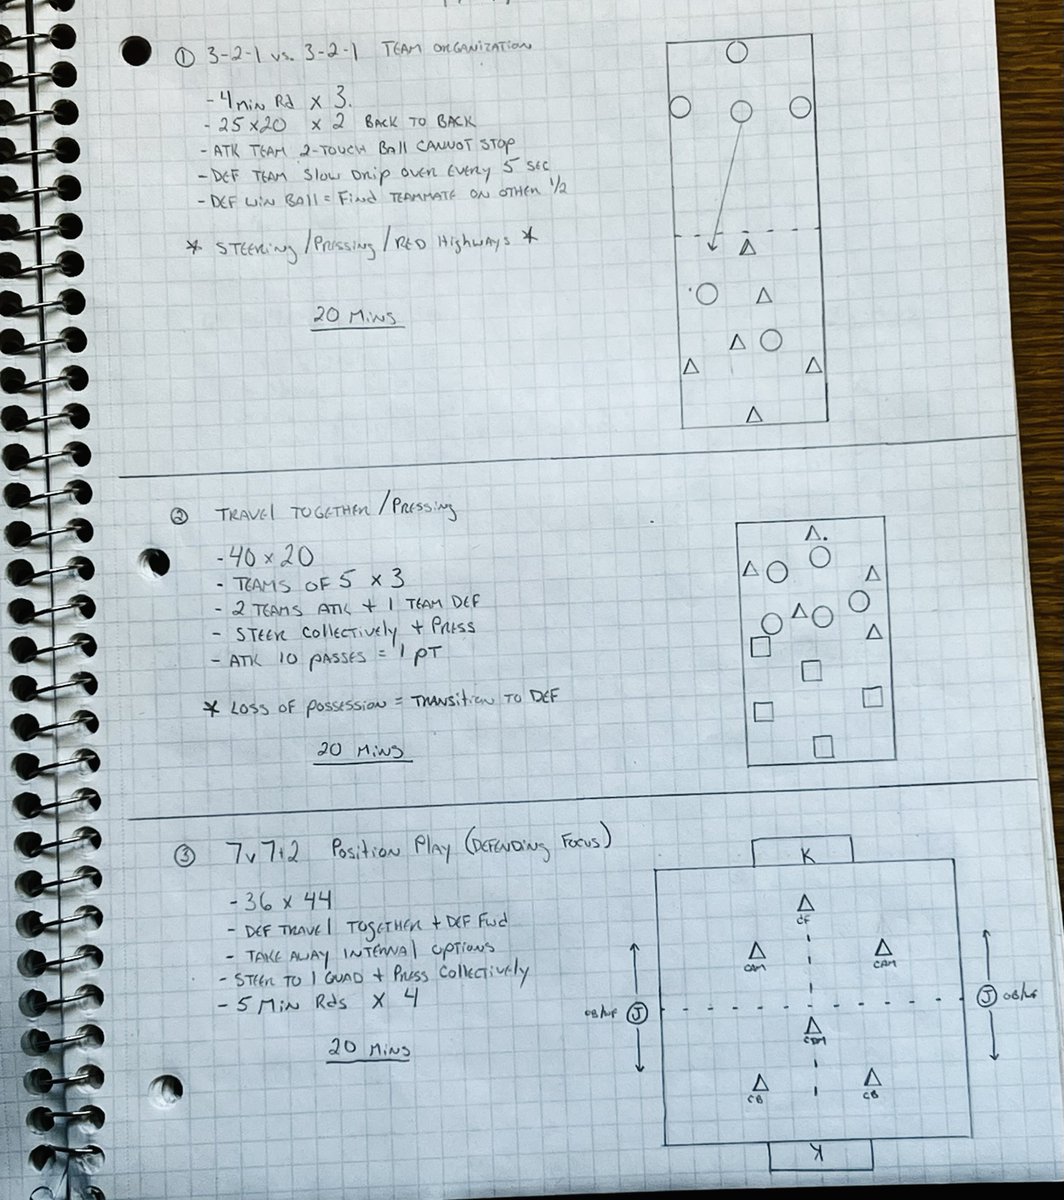 ① 3-2-1 vs. 3-2-1 TEAM ORGANIZATION
- 4 Min Rd x 3.
- 25 x 20 x 2 BACK TO BACK
- ATK TEAM 2-TOUCH Ball CANNOT STOP
- DEF TEAM Slow Drip OVER EVERY 5 SEC
- DEF WIN BALL = Find TEAMMATE ON OTHER 1/2
* STEERING / PRESSING / RED Highways *
20 Mins
② TRAVEL TOGETHER / PRESSING
- 40 x 20
- TEAMS OF 5 x 3
- 2 TEAMS ATK + 1 TEAM DEF
- STEER Collectively + PRESS
- ATK 10 PASSES = 1 PT
* LOSS OF POSSESSION = TRANSITION TO DEF
20 Mins
③ 7v7+2 Position Play (DEFENDING FOCUS)
- 36 x 44
- DEF TRAVEL TOGETHER + DEF Fwd
- TAKE AWAY INTERNAL OPTIONS
- STEER TO 1 QUAD + PRESS Collectively
- 5 Min Rds x 4
20 Mins
K
CF
CAM CAM
OB/WF J J OB/WF
CDM
CB CB
K